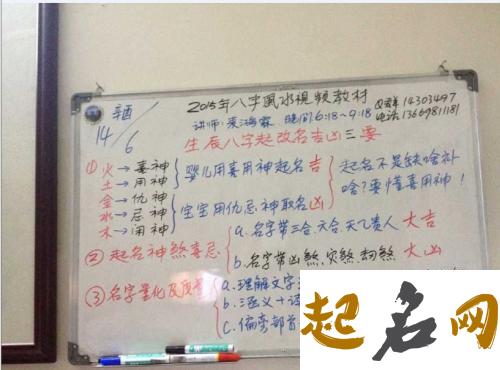 辛酉
14/6
2015年八字風水視频教材
讲师:
晚间6:18~9:18
Q群14303497
电话:13669811181
生辰八字起改名吉凶三要
① 火→喜神
土→用神
婴儿用喜用神起名吉
金→仇神
水→忌神
木→闲神
宝宝用仇忌神取名凶
起名不是缺啥补啥?要懂喜用神!
② 起名神煞喜忌
a.名字带三合六合天乙贵人 大吉
b.名字带凶煞,灾煞,劫煞 大凶
③ 名字量化及
a.理解文字
b.涵义十
c.偏旁部首
起名网